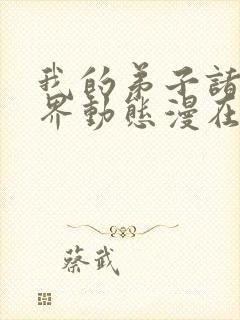 我的弟子諸
界動態漫在
蔡武